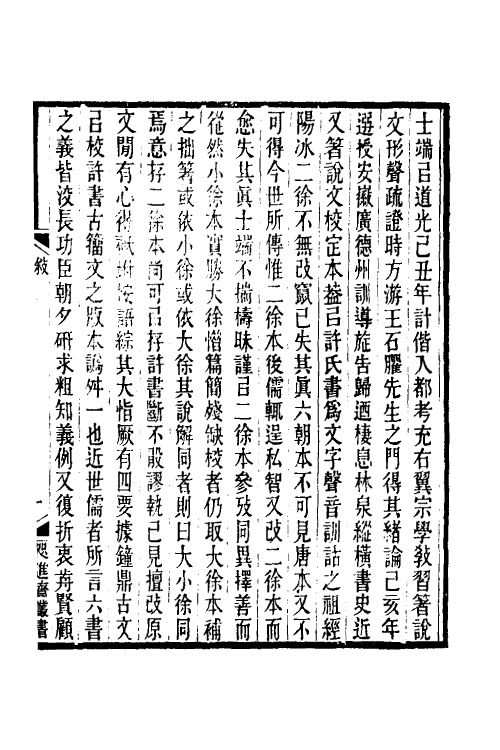 士端㠯道光己丑年計偕入都考充右翼宗學教習箸說
文形聲疏證時方游王石臞先生之門得其緒論己亥年
選授安徽廣德州訓導旋告歸迺棲息林泉縱橫書史近
又箸說文校定本葢㠯許氏書爲文字聲音訓詁之祖經
陽冰二徐不無改竄已失其眞六朝本不可見唐本又不
可得今世所傳惟二徐本後儒輒逞私智又改二徐本而
愈失其眞士端不揣檮昧謹㠯二徐本參攷同異擇善而
從然小徐本實勝大徐惜篇簡殘缺校者仍取大徐本補
之拙箸或依小徐或依大徐其說解同者則曰大小徐同
焉意存二徐本尚可㠯存許書斷不敢謬執己見擅改原
文閒有心得輒坿按語綜其大恉厥有四要據鐘鼎古文
㠯校許書古籀文之版本譌舛一也近世儒者所言六書
之義皆洨長功臣朝夕硏求粗知義例又復折衷歬賢顧
敘
一
咫進齋叢書